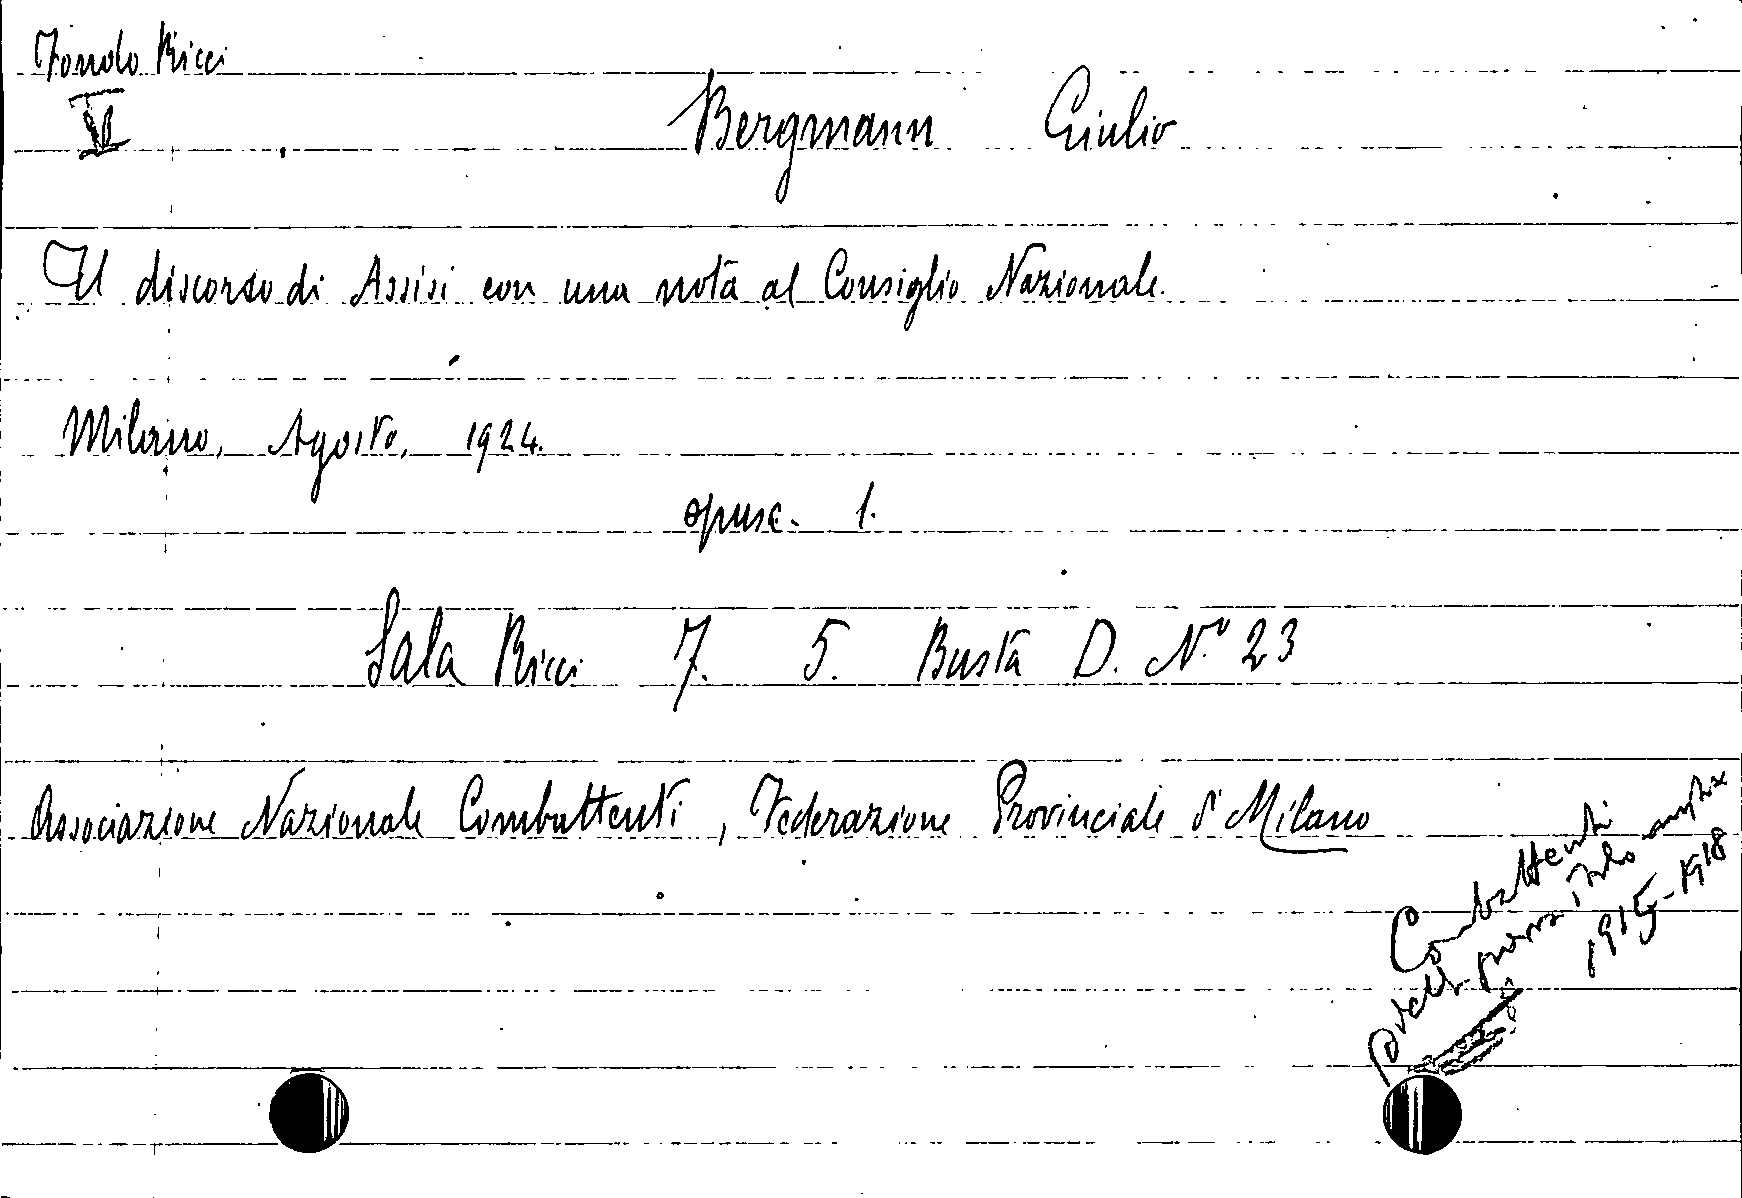 Fondo Ricci
VI
Bergmann Giulio
Il discorso di Assisi con una nota al Consiglio Nazionale.
Milano, Agosto, 1924.
opusc. 1.
Sala Ricci 7. 5. Busta D. N.º 23
Associazione Nazionale Combattenti, Federazione Provinciale di Milano
Combattenti
guerra italo
1915-1918